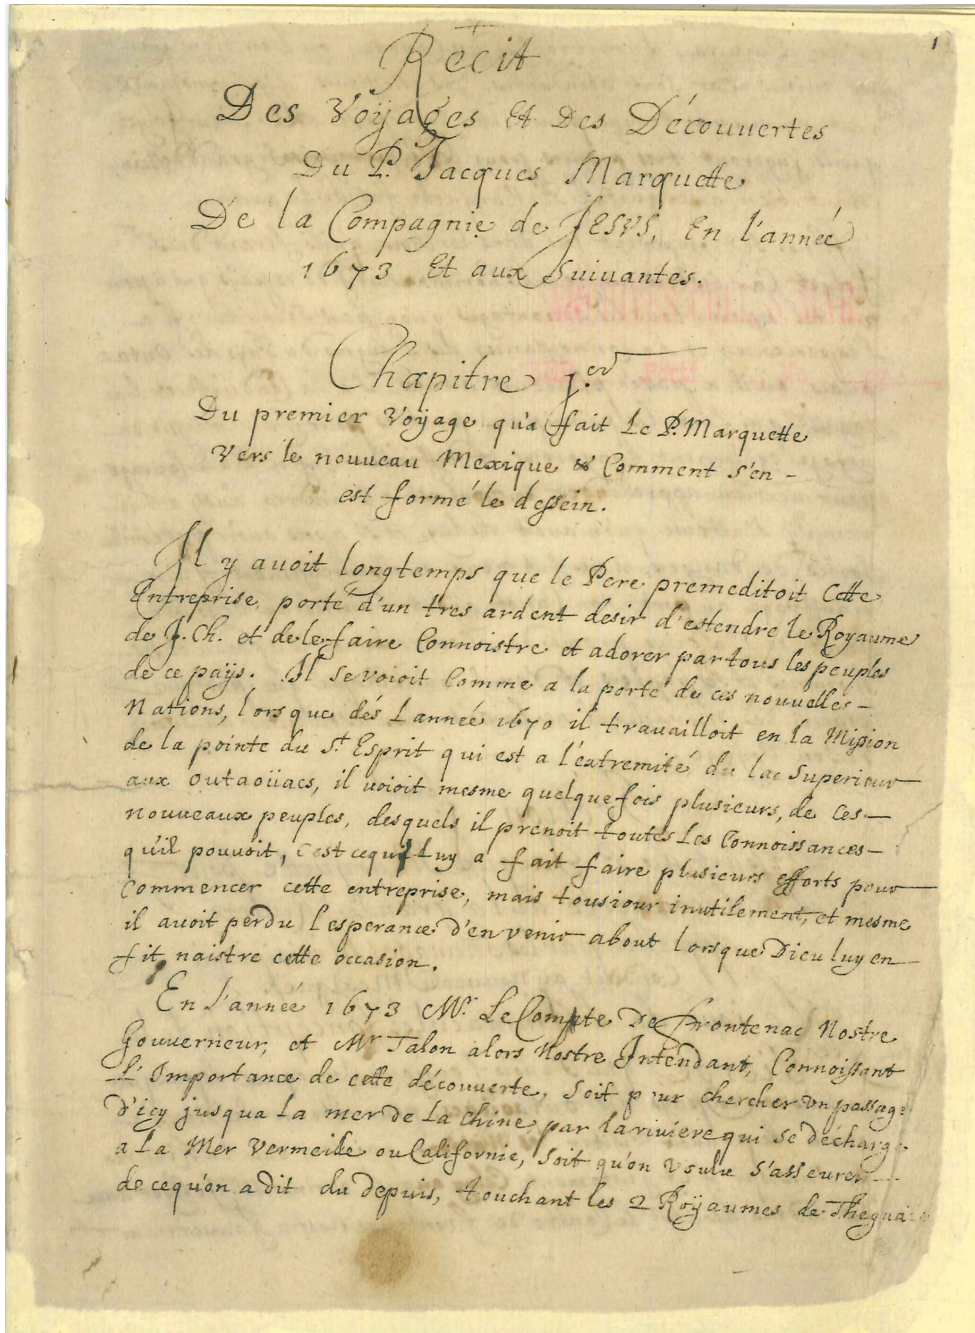 1
Récit
Des Voÿages Et Des Découuertes
Du P. Jacques Marquette
De la Compagnie de Jesvs, En l'année
1673 Et aux Suiuantes.
Chapitre 1.er
Du premier Voÿage qu'a fait Le P. Marquette
Vers le nouueau Mexique & Comment s'en
est formé le dessein.
Il y auoit longtemps que le Pere premeditoit Cette
Entreprise, porté d'un tres ardent desir d'estendre le Royaume
de J. Ch. et de le faire Connoistre et adorer par tous les peuples
de ce paÿs. Il se voioit Comme a la porte de ces nouuelles
Nations, lors que dés L'année 1670 il trauailloit en la Mission
de la pointe du St. Esprit qui est a l'éxtremité du lac Superieur
aux outaoüacs, il voioit mesme quelquefois plusieurs, de ces
nouueaux peuples, desquels il prenoit toutes Les Connoissances
qu'il pouuoit, C'est ce qui Luy a fait faire plusieurs efforts pour
Commencer cette entreprise, mais tousiour inutilement, et mesme
il auoit perdu l'esperance d'en venir about lors que Dieu luy en
fit naistre cette occasion.
En L'année 1673 Mr. Le Compte De frontenac Nostre
Gouuerneur, et Mr Talon alors Nostre Intendant, Connoissant
L'Importance de cette découuerte, Soit pour chercher vn passage
D'icy jusqua La mer de La Chine par la riuiere qui se décharge
a La Mer Vermeille ou Californie, Soit qu'on voulu S'asseurer
de ce qu'on a dit du depuis, touchant les 2 Roÿaumes de